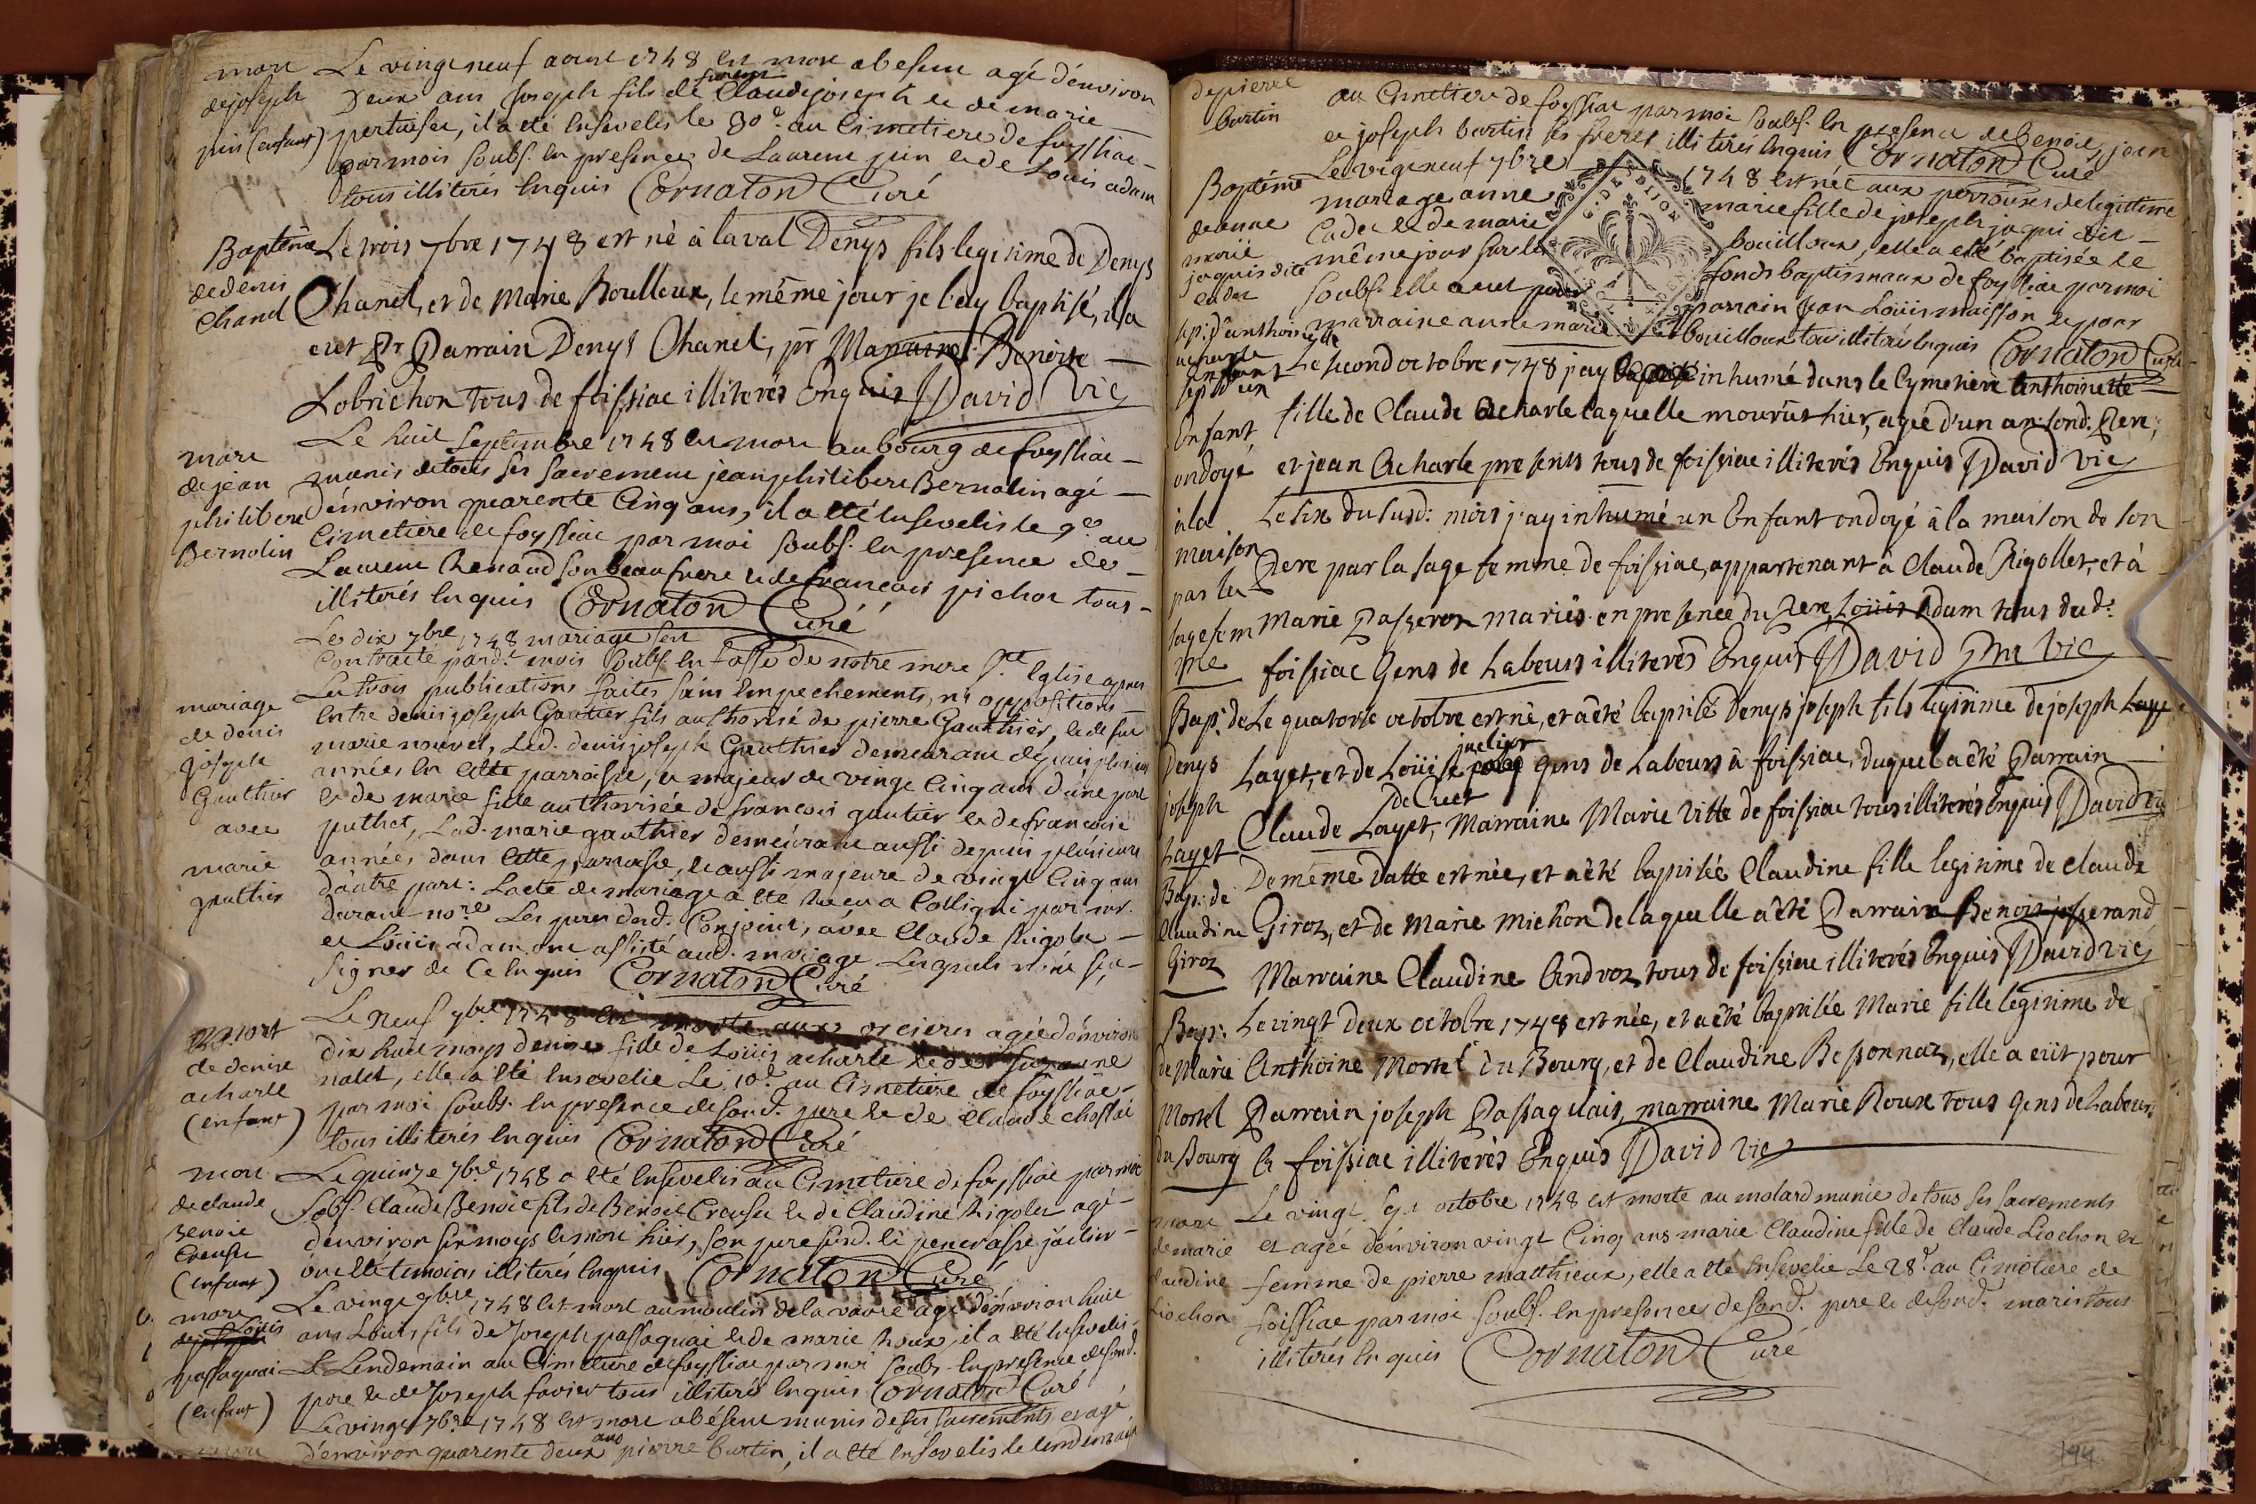 mort Le vingt neuf aout 1748 est mort abeseur agé d'environ
de joseph deux ans joseph fils de Claude joseph et de marie
pin (enfant) pertuiset, il a eté Ensevelis le 30e. au Cimetiere de foyssiac
par mois soubs. en presence de Laurent pin et de Louis adam
tous illiterés Enquis Cornaton Curé
Baptême Le trois 7bre 1748 est né à laval Denys fils legitime de Denys
de denis Chanel, et de Marie Boulloux, le même jour je l'ay baptisé, il a
Chanel
eut pr Parrain Denys Chanel, pr Marraine Benoite
Lobrichon tous de foissiac illiterés Enquis David Vic
Le huit septembre 1748 est mort au bourg de foyssiac
mort munis de tous ses sacrement jean philibert Bernolin agé
de jean d'environ quarente Cinq ans, il a eté Ensevelis le 9e. au
philibert Cimetiere de foyssiac par moi soubs. en presence de
Bernolin Laurent Renaud son beau frere et de francois pichon tous
illiterés Enquis Cornaton Curé
Le dix 7bre 1748 mariage s'est
Contracté pard. mois soubs. en fasse de notre mere Ste. Eglise apres
Les trois publications faites sans Empechements, ni oppositions
mariage Entre denis joseph Gautier fils authorisé de pierre Gauthier, et de fut
de denis marie nouvel, Led. denis joseph Gauthier demeurant depuis plusieurs
joseph années en cette parroisse, et majeur de vingt Cinq ans d'une part
Gauthier et de marie fille authorisée de francois gautier et de francoise
avec puthet, Lad. marie gauthier demeurant aussi depuis plusieurs
marie années dans cette parroisse, et aussi majeure de vingt Cinq ans
gauthier d'autre part: L'acte de mariage a eté receu a Colligni par mr.
durant nore. Les peres desd. Conjoint, avec Claude Rigolet
et Louis adam ont assisté aud. mariage Lesquels n'ont sçu
signer de Ce Enquis Cornaton Curé
Le Neuf 7bre 1748 est morte aux agée d'environ
mort dix huit moys denise fille de Louis acharle et de suzanne
de denise nalet, elle a eté Ensevelie Le 10e. au Cimetiere de foyssiac
acharle par moi soubs. en presence de sond. pere et de Claude
(enfant) tous illiterés Enquis Cornaton Curé
mort Le quinze 7bre 1748 a eté Ensevelis au Cimetiere de foyssiac par moi
de claude sobs. Claude Benoit fils de Benoit Creuset et de Claudine Rigolet agé
Benoit d'environ six moys et mort hier, son pere sond. et
Creuset ont eté temoins illiterés Enquis Cornaton Curé
(enfant)
mort Le vingt 7bre 1748 est mort au moulin de la vavre agé d'environ huit
de Louis ans Louis fils de Joseph passaquai et de marie Roux, il a eté Ensevelis
passaquai Le Lendemain au Cimetiere de foyssiac par moi soubs. en presence de sond.
(enfant) pere et de Joseph favier tous illiterés Enquis Cornaton Curé
Le vingt 7bre 1748 est mort abéseur munis de ses sacrements et agé
mort d'environ quarente deux ans pierre burtin, il a eté Ensevelis le lendemain
de pierre au Cimetiere de foyssiac par moi soubs. en presence de Benoit, jean
burtin et joseph burtin ses freres illiterés Enquis Cornaton Curé
Baptême Le vigt neuf 7bre 1748 est née aux perrouses de legittime
de anne mariage anne marie fille de joseph jaquis dit
marie Cadet et de marie bouilloux, elle a eté baptisée le
jaquis dite même jour sur les fonds baptismaux de foyssiac par moi
cadet soubs. elle a eut pour parrain jean Louis maisson et pour
marraine anne marie bouilloux tous illiterés Enquis Cornaton Curé
G. DE DIJON
sep: d'anthoinette acharle
Le second octobre 1748 j'ay inhumé dans le Cymetiere Anthoinette
fille de Claude Acharle laquelle mourût hier, agée d'un an: sond. Pere,
et jean Acharle presents tous de foissiac illiterés Enquis David Vic
sep: d'un Enfant ondoyé à la maison par la sage femme
Le six du susd: mois j'ay inhumé un Enfant ondoyé à la maison de son
Pere par la sage femme de foissiac, appartenant à Claude Rigollet, et à
Marie Passeron mariés en presence du Pere, Loüis Adam tous dud.
foissiac Gens de Labeurs illiterés Enquis David Vic
Bap: de Le quatorze octobre est né, et a été baptisé Denys joseph fils legitime de joseph Laye
Denys Layet, et de Loüise juelier gens de Labeurs à foissiac, duquel a été Parrain
joseph Claude Layet de Cuet, Marraine Marie Vitte de foissiac tous illiterés Enquis David Vic
Layet
Bap: de De même datte est née, et a été baptisée Claudine fille legitime de Claude
Claudine Giroz, et de Marie Michon de laquelle a été Parrain Benoit josserand
Giroz Marraine Claudine Andvoz tous de foissiac illiterés Enquis David Vic
Bap: Le vingt deux octobre 1748 est née, et a été baptisée Marie fille legitime de
de Marie Anthoine Mortel du Bourg, et de Claudine Beponnaz, elle a eüt pour
Mortel Parrain joseph Passaquais, marraine Marie Roux tous Gens de Labeur
du Bourg à foissiac illiterés Enquis David Vic
mort Le vingt sept octobre 1748 est morte au molard munie de tous ses sacrements
de marie et agée d'environ vingt Cinq ans marie Claudine fille de Claude Liochon et
claudine femme de pierre matthieux, elle a eté Ensevelie Le 28e. au Cimetiere de
Liochon foissiac par moi soubs. en presences de sond. pere et de sond. maris tous
illiterés Enquis Cornaton Curé
194